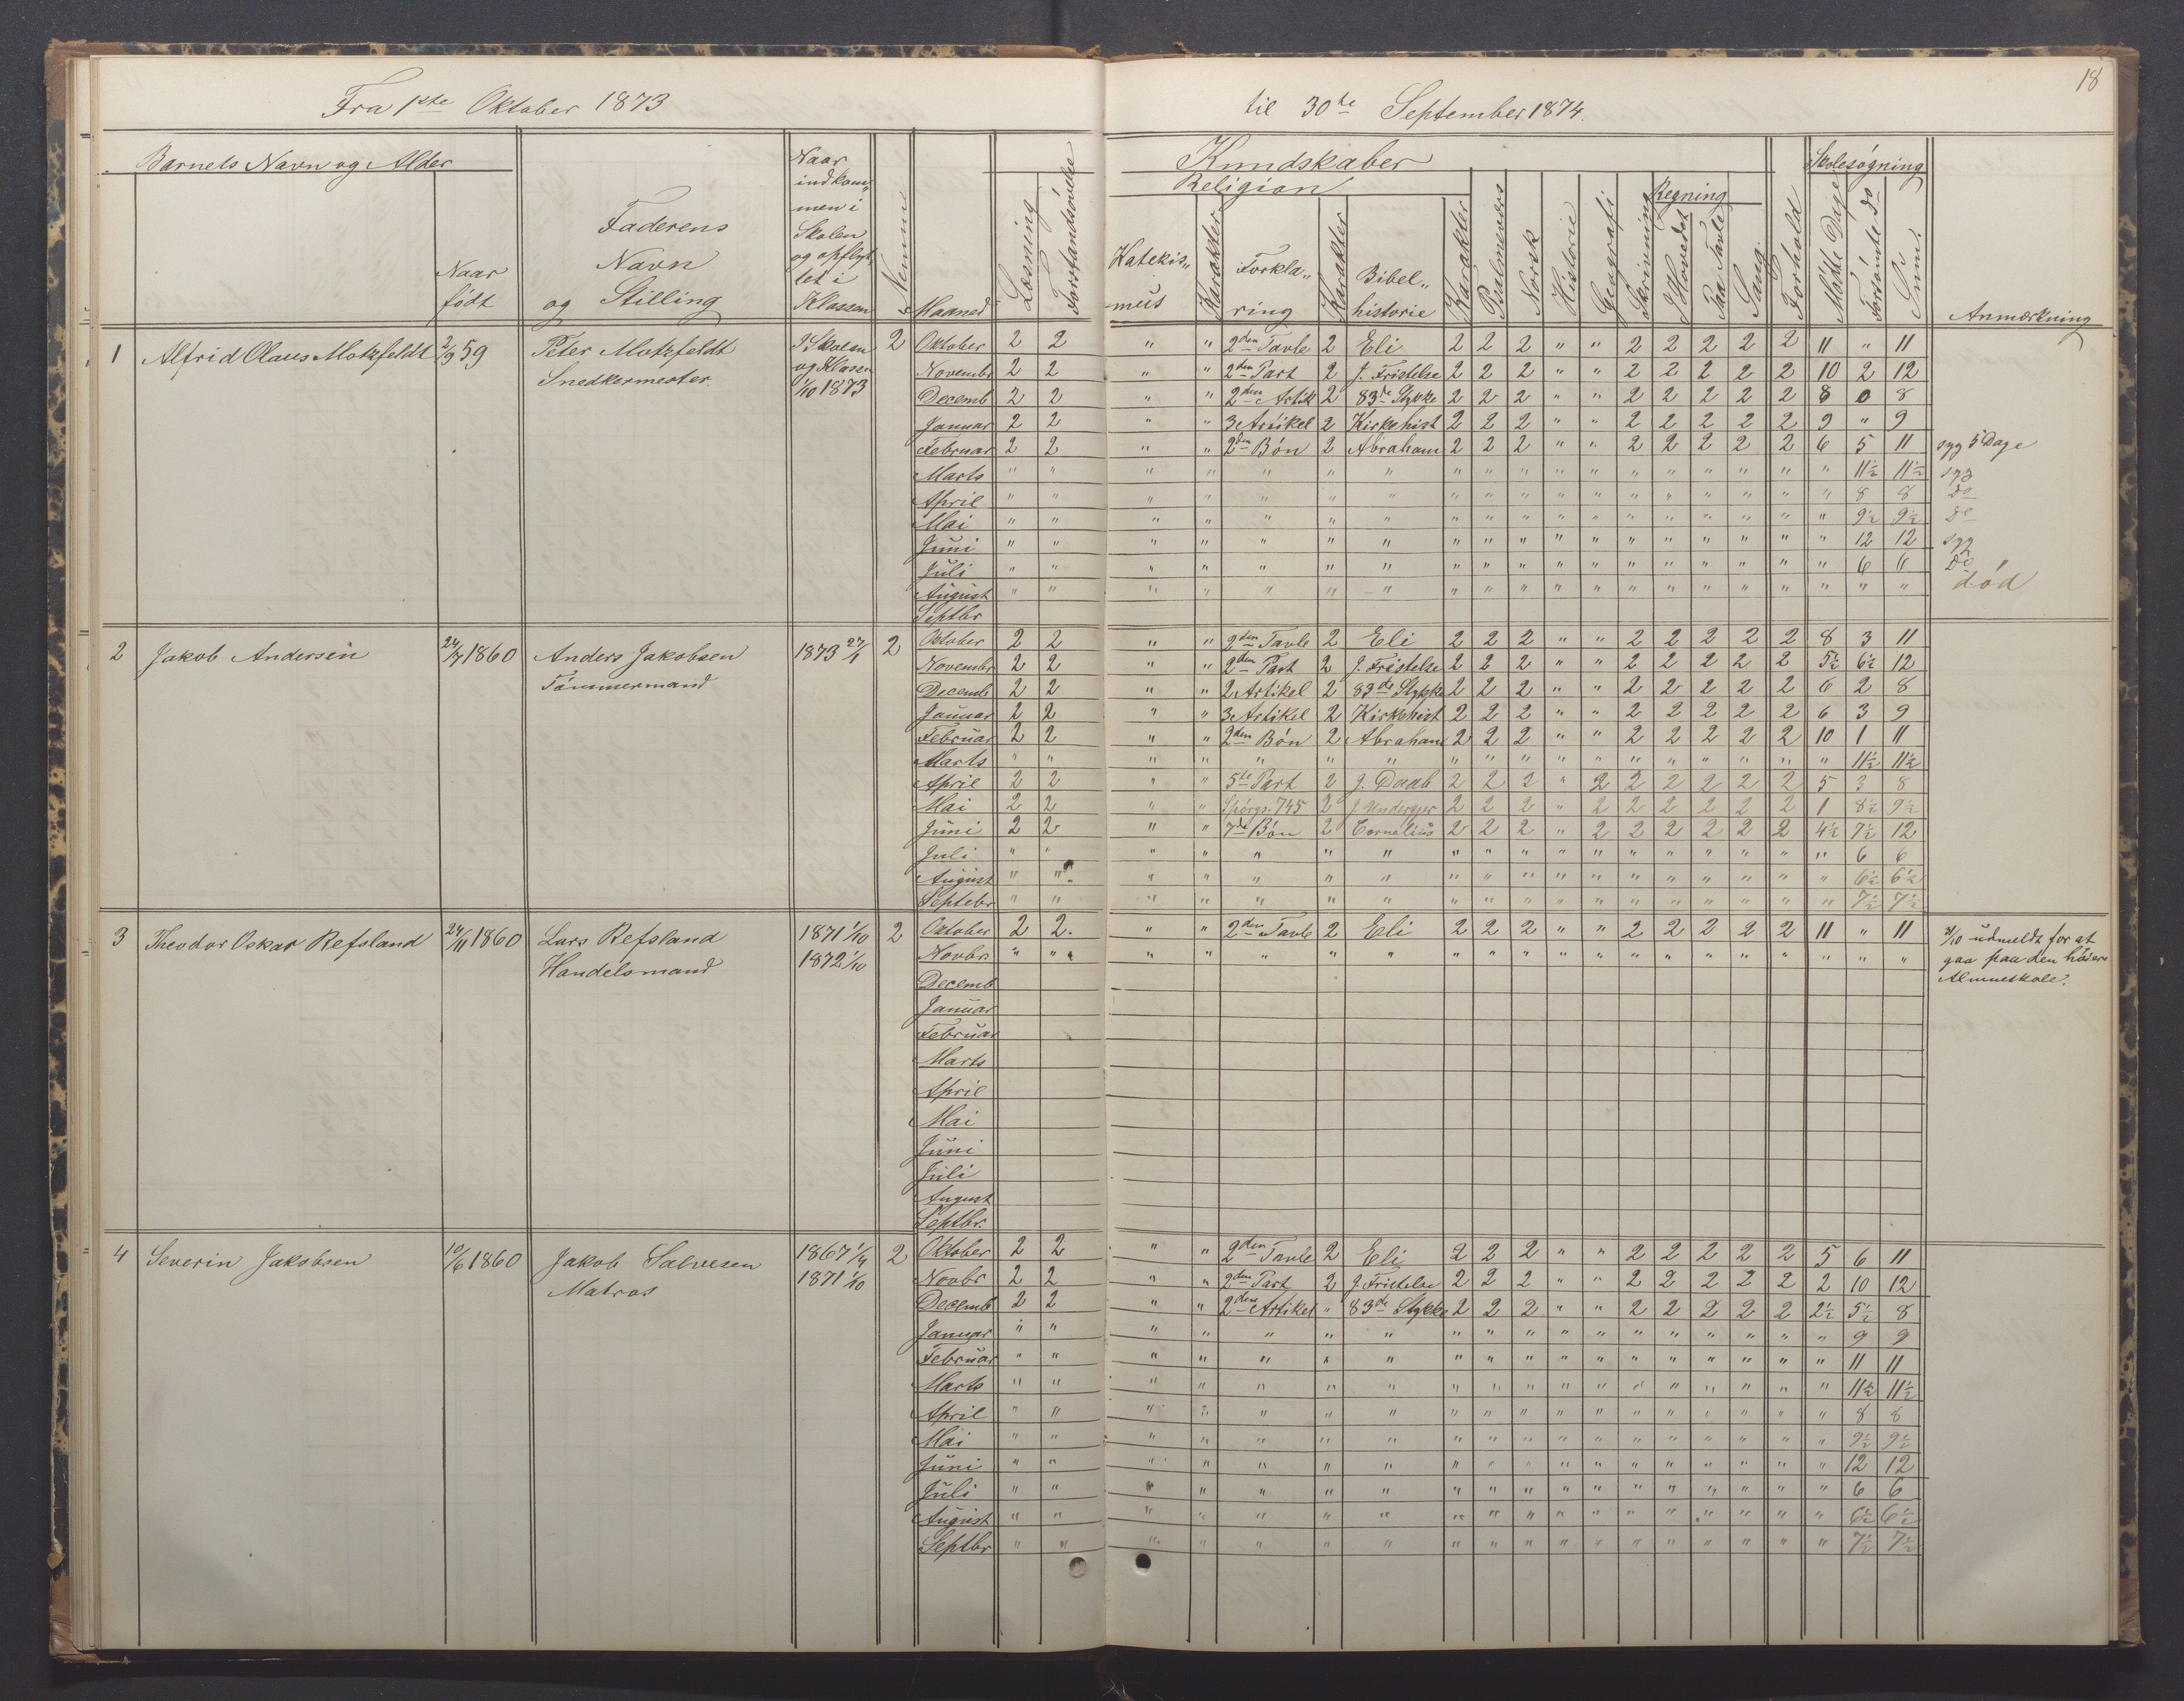 18
Fra 1ste Oktober 1873 til 30te September 1874.
Barnets Navn og Alder
Naar født
Faderens Navn og Stilling
Naar indkommen i Skolen og opflyttet i Klassen
Nemme
Maaned
Læsning
Forstandsøvelse
Kundskaber
Religion
Katekis„mus
Karakter
Forkla„ring
Karakter
Bibel„historie
Karakter
Psalmevers
Norsk
Historie
Geografi
Skrivning
Regning
I Hovedet
Paa Tavle
Sang
Forhold
Skolesøgning
Mødte Dage
Forsømte Do
Sum.
Anmærkning
1 Alfrid Olaus Motzfeldt 2/9 59 Peter Motzfeldt I Skolen 2
Snedkermester. og Klasen
1/10 1873
Oktober 2 2 " " 2den Tavle 2 Eli 2 2 2 " " 2 2 2 2 2 11 " 11
Novembr 2 2 " " 2den Part 2 J. Fristelse 2 2 2 " " 2 2 2 2 2 10 2 12
Decemb 2 2 " " 2den Artik 2 83de Stykke 2 2 2 " " 2 2 2 2 2 8 0 8
Januar 2 2 " " 3 Artikel 2 Kirkehist 2 2 2 " " 2 2 2 2 2 9 " 9
Februar 2 2 " " 2den Bøn 2 Abraham 2 2 2 " " 2 2 2 2 2 6 5 11 syg 5 Dage
Marts " " " " " " " " " " " " " " " " " " 11½ 11½ syg
April " " " " " " " " " " " " " " " " " " 8 8 Do
Mai " " " " " " " " " " " " " " " " " " 9½ 9½ Do
Juni " " " " " " " " " " " " " " " " " " 12 12 syg
Juli " " " " " " " " " " " " " " " " " " 6 6 Do
August " " " " " " " " " " " " " " " " " " " " død
Septbr
2 Jakob Andersen 24/7 1860 Anders Jakobsen 1873 27/1 2
Tømmermand
Oktober 2 2 " " 2den Tavle 2 Eli 2 2 2 " " 2 2 2 2 2 8 3 11
Novembr 2 2 " " 2den Part 2 J. Fristelse 2 2 2 " " 2 2 2 2 2 5½ 6½ 12
Decemb 2 2 " " 2 Artikel 2 83de Stykke 2 2 2 " " 2 2 2 2 2 6 2 8
Januar 2 2 " " 3 Artikel 2 Kirkehist 2 2 2 " " 2 2 2 2 2 6 3 9
Februar 2 2 " " 2den Bøn 2 Abraham 2 2 2 " " 2 2 2 2 2 10 1 11
Marts " " " " " " " " " " " " " " " " " " 11½ 11½
April 2 2 " " 5te Part 2 J. Daab 2 2 2 " 2 2 2 2 2 2 5 3 8
Mai 2 2 " " Spørgs. 745 2 J. Undergjer 2 2 2 " 2 2 2 2 2 2 1 8½ 9½
Juni 2 2 " " 7de Bøn 2 Cornelius 2 2 2 " 2 2 2 2 2 2 4½ 7½ 12
Juli " " " " " " " " " " " " " " " " " " 6 6
August " " " " " " " " " " " " " " " " " " 6½ 6½
Septebr " " " " " " " " " " " " " " " " " " 7½ 7½
3 Theodor Oskar Refsland 24/11 1860 Lars Refsland 1871 1/10 2
Handelsmand 1872 1/10
October 2 2. " " 2den Tavle 2 Eli 2 2 2 " " 2 2 2 2 2 11 " 11 31/10 udmeldt for at
Novbr. " " " " " " " " " " " " " " " " " " " " gaa paa den høiere
Decemb Almueskole.
Januar
Februar
Marts
April
Mai
Juni
Juli
August
Septbr.
4 Severin Jakobsen 10/6 1860 Jakob Salvesen 1867 1/4 2
Matros 1871 1/10
Oktober 2 2 " " 2den Tavle 2 Eli 2 2 2 " " 2 2 2 2 2 5 6 11
Novbr 2 2 " " 2den Part 2 J. Fristelse 2 2 2 " " 2 2 2 2 2 2 10 12
Decemb 2 2 " " 2den Artikel " 83de Stykke 2 2 2 " " 2 2 2 2 2 2½ 5½ 8
Januar " " " " " " " " " " " " " " " " " " 9 9
Februar " " " " " " " " " " " " " " " " " " 11 11
Marts " " " " " " " " " " " " " " " " " " 11½ 11½
April " " " " " " " " " " " " " " " " " " 8 8
Mai " " " " " " " " " " " " " " " " " " 9½ 9½
Juni " " " " " " " " " " " " " " " " " " 12 12
Juli " " " " " " " " " " " " " " " " " " 6 6
August " " " " " " " " " " " " " " " " " " 6½ 6½
Septbr " " " " " " " " " " " " " " " " " " 7½ 7½